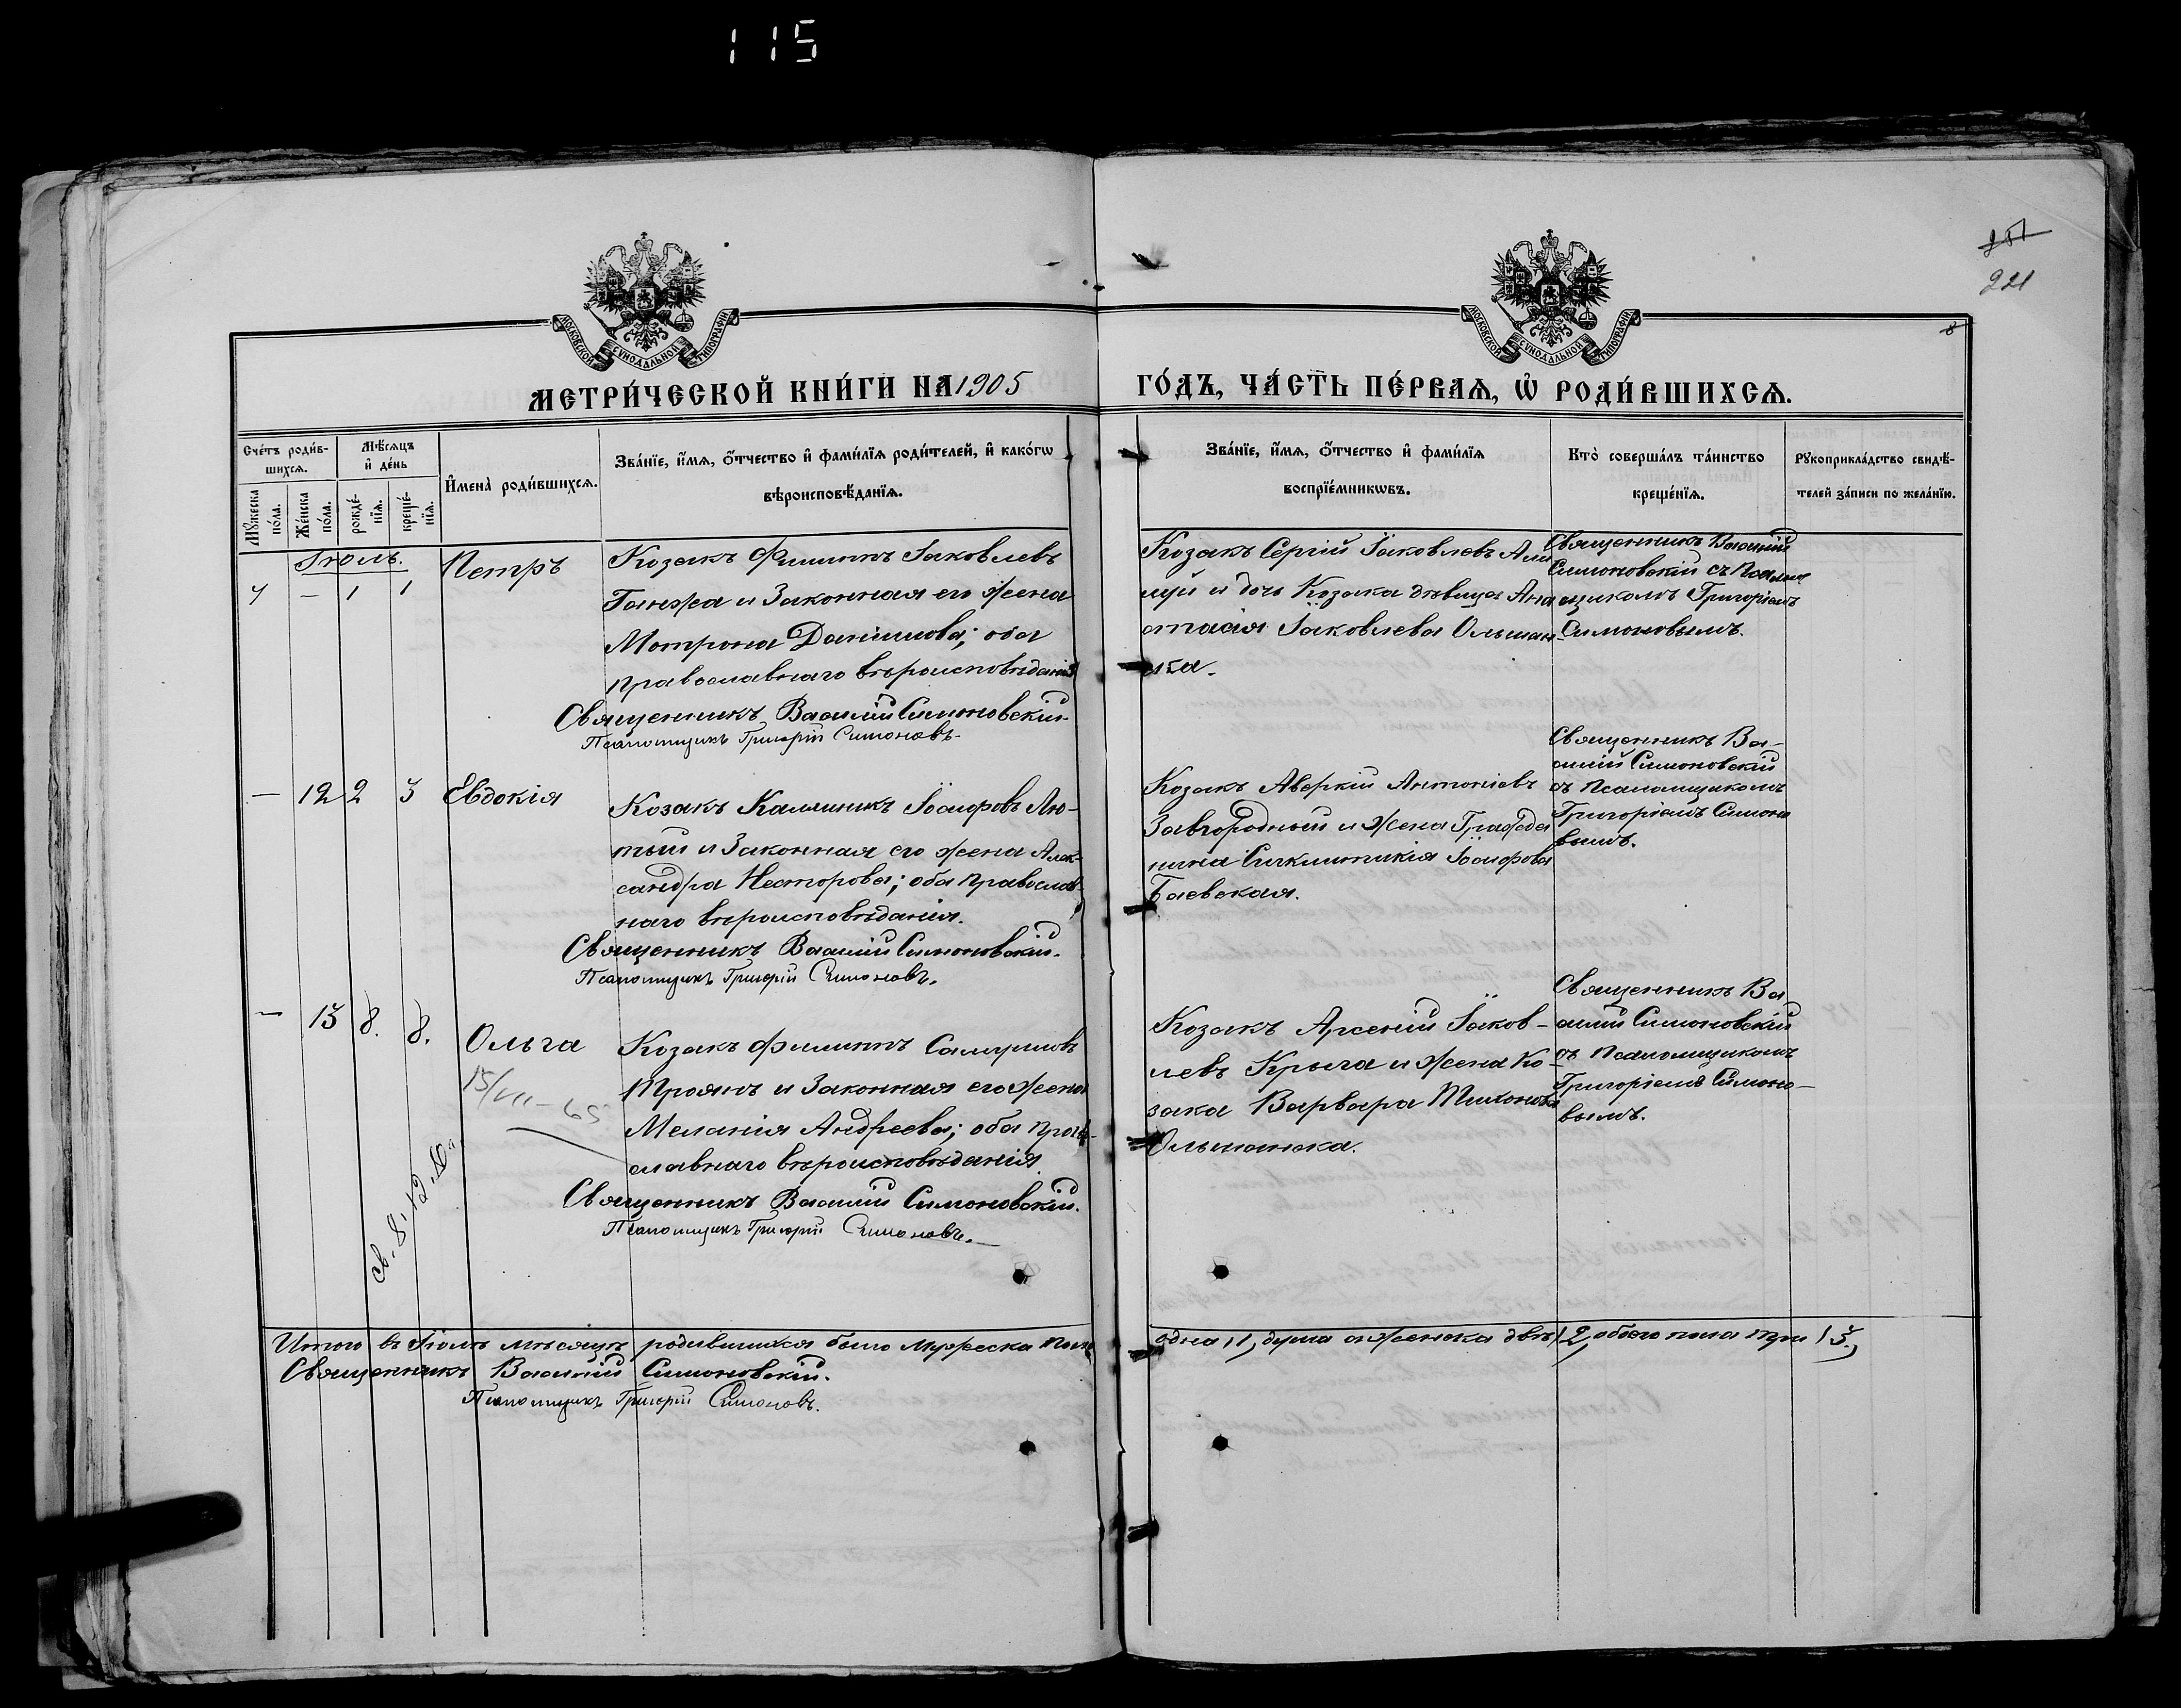 115
151
221
8
МОСКОВСКОЙ СѴНОДАЛЬНОЙ ТИПОГРАФІИ
МОСКОВСКОЙ СѴНОДАЛЬНОЙ ТИПОГРАФІИ
МЕТРИ́ЧЕСКОЙ КНИ́ГИ НА 1905 ГО́ДЪ, ЧА́СТЬ ПЕ́РВАѦ, Ѡ҆ РОДИ́ВШИХСѦ.
Сче́тъ роди́в-
шихсѧ.
Мѣ́сѧцъ
и҆ де́нь
Мꙋ́жеска
по́ла.
Же́нска
по́ла.
рожде́-
нїѧ.
креще́-
нїѧ.
И҆мена̀ роди́вшихсѧ.
Зва́нїе, и҆́мѧ, ѻ҆́тчество и҆ фами́лїѧ роди́телей, и҆ како́гѡ
вѣроисповѣ́данїѧ.
Зва́нїе, и҆́мѧ, ѻ҆́тчество и҆ фами́лїѧ
воспрїе́мникѡвъ.
Кто̀ соверша́лъ та́инство
креще́нїѧ.
Рꙋкоприкла́дство свидѣ́-
телей за́писи по жела́нїю.
Іюль.
7 — 1 1
Петръ
Козакъ Филиппъ Іаковлевъ
Ганжа и Законная его жена
Матрона Даніилова; оба
Православнаго вѣроисповѣданія
Священникъ Василій Симоновскій.
Псаломщикъ Григорій Симоновъ.
Козакъ Сергій Іаковлевъ
и дочь Козака дѣвица Ана
стасія Іаковлева Ольшан-
Священникъ Василій
Симоновскій съ Псаломщикомъ Григоріемъ
Симоновымъ.
— 12 2 3
Евдокія
Козакъ Каллиникъ Іосифовъ Лю-
тый и Законная его жена Алек-
сандра Несторова; оба Православ-
наго вѣроисповѣданія.
Священникъ Василій Симоновскій.
Псаломщикъ Григорій Симоновъ.
Козакъ Аверкій Антоніевъ
Завгородный и жена Гражда
нина Сигклитикія Іосифова
Баевская.
Священникъ Ва-
силій Симоновскій
съ Псаломщикомъ
Григоріемъ Симоно
вымъ.
— 13 8. 8.
Ольга
15/VII-65
св. 8.12
Козакъ Филиппъ Самуиловъ
Троянъ и Законная его жена
Меланія Андреева; оба Право-
славнаго вѣроисповѣданія.
Священникъ Василій Симоновскій.
Псаломщикъ Григорій Симоновъ.
Козакъ Арсеній Іаков-
левъ Крыга и жена Ко-
зака Варвара Тихонова
Священникъ Ва
силій Симоновскій
съ Псаломщикомъ
Григоріемъ Симоно-
вымъ.
Итого въ Іюлѣ мѣсяцѣ родившихся было мужеска пола одна /1/ душа а женска двѣ /2/ обоего пола три /3/.
Священникъ Василій Симоновскій.
Псаломщикъ Григорій Симоновъ.